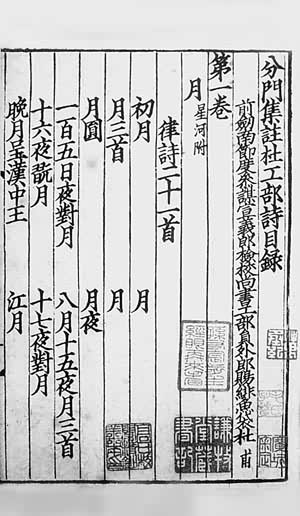 分門集註杜工部詩目錄
前劒南節度參謀宣義郎檢校尚書工部員外郎賜緋魚袋杜 甫
第一卷
月 星河附
律詩二十一首
初月 月
月三首 月
月圓 月夜
一百五日夜對月 八月十五夜月三首
十六夜翫月 十七夜對月
晚月呈漢中王 江月
謙牧堂藏書記